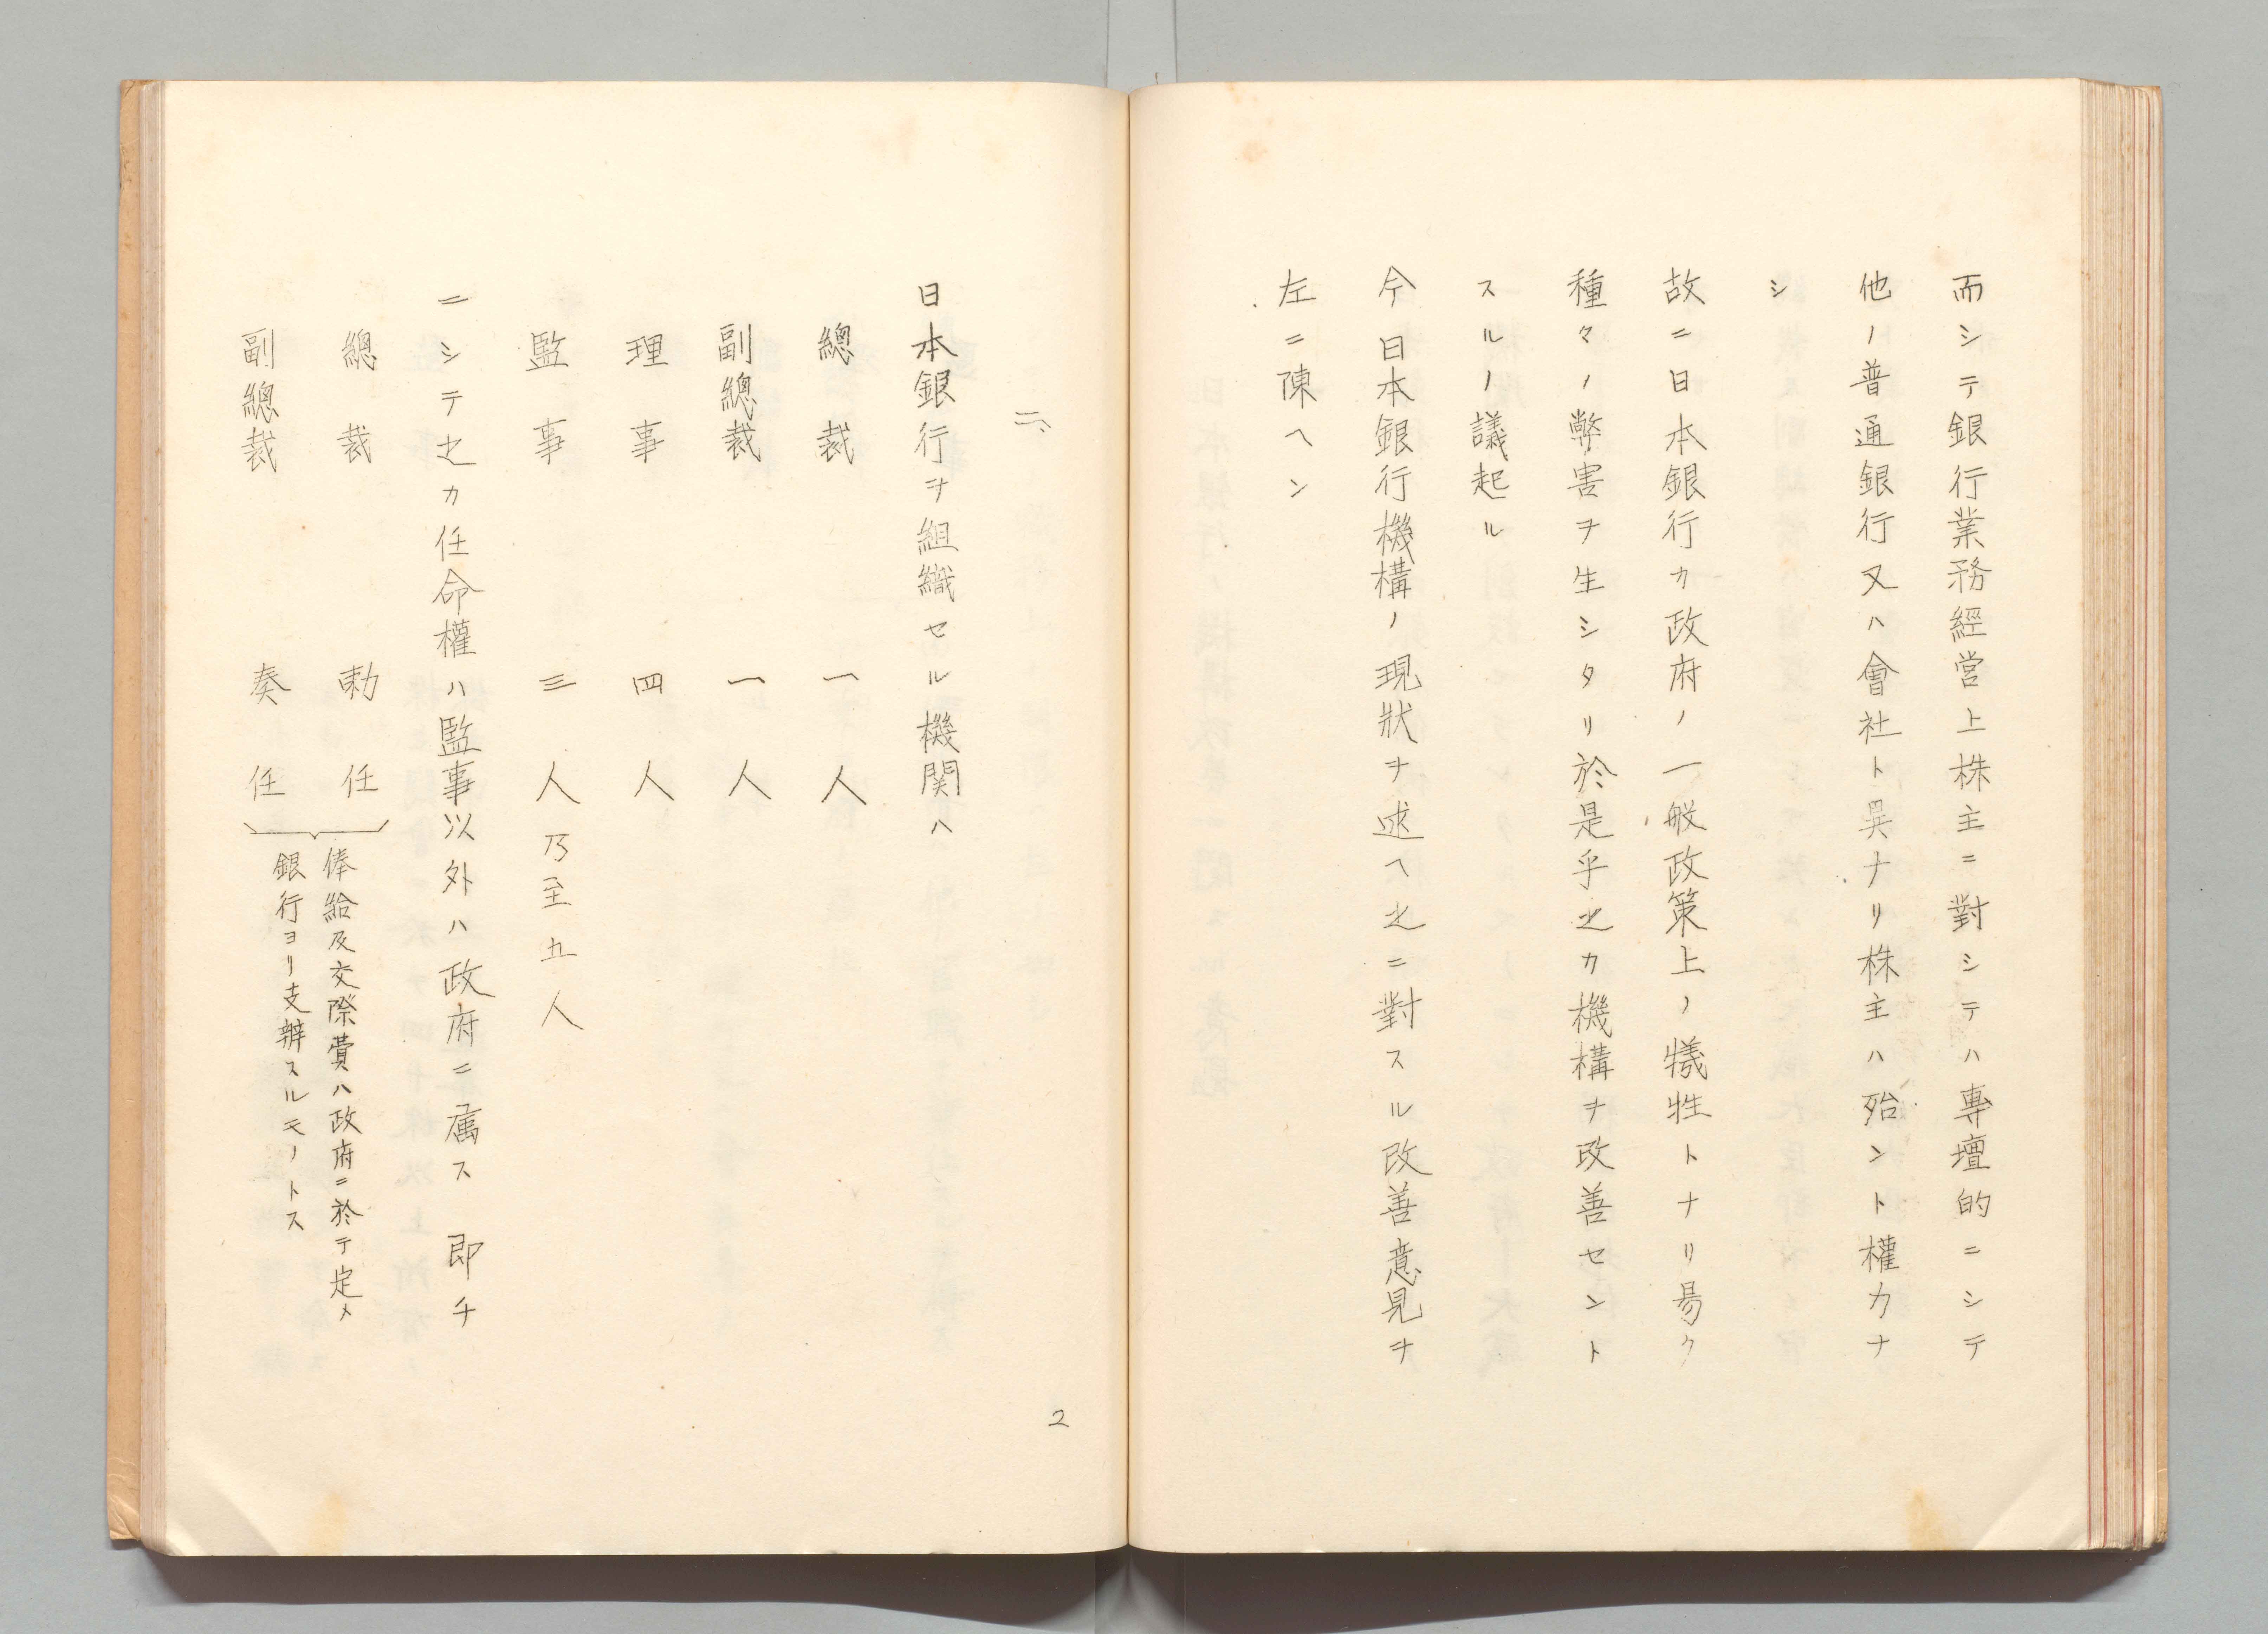 而シテ銀行業務經営上株主ニ對シテハ專壇的ニシテ
他ノ普通銀行又ハ會社ト異ナリ株主ハ殆ント權力ナ
シ
故ニ日本銀行カ政府ノ一般政策上ノ犠牲トナリ易ク
種々ノ弊害ヲ生シタリ於是乎之カ機構ヲ改善セント
スルノ議起ル
今日本銀行機構ノ現狀ヲ述ヘ之ニ對スル改善意見ヲ
左ニ陳ヘン
二、
日本銀行ヲ組織セル機関ハ
總裁 一人
副總裁 一人
理事 四人
監事 三人乃至五人
ニシテ之カ任命權ハ監事以外ハ政府ニ属ス 即チ
總裁 勅任
副總裁 奏任
俸給及交際費ハ政府ニ於テ定メ
銀行ヨリ支辨スルモノトス
2